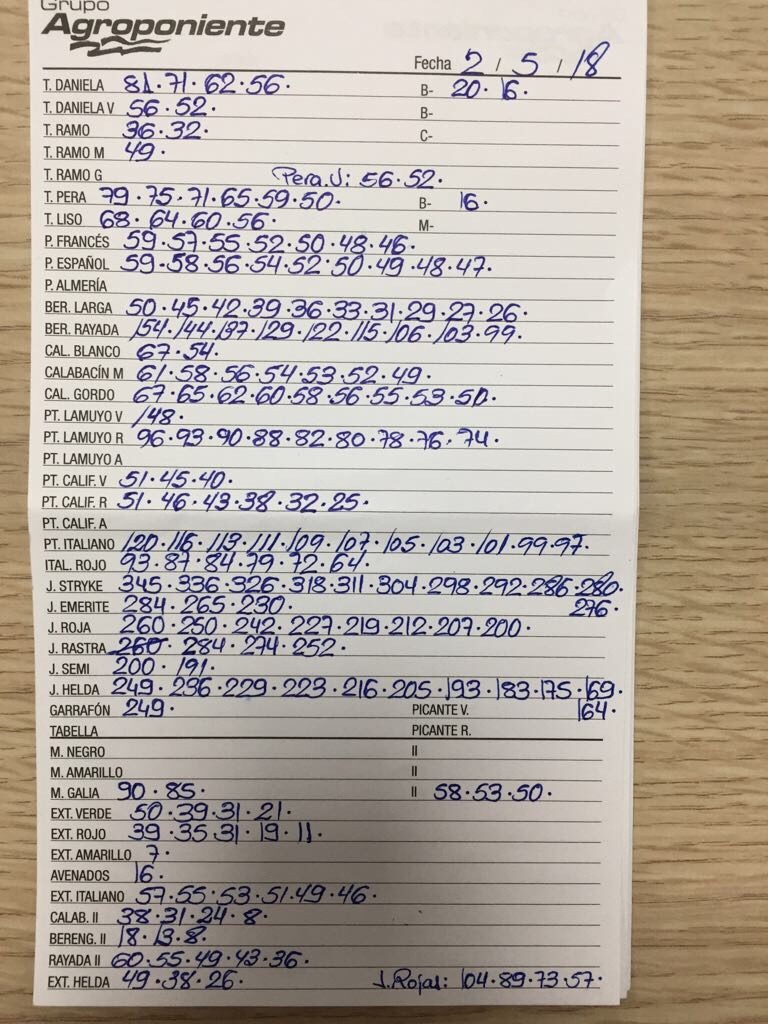 Grupo
Agroponiente
Fecha 2 / 5 / 18
T. DANIELA 81.71.62.56. B- 20.16.
T. DANIELA V 56.52. B-
T. RAMO 36.32. C-
T. RAMO M 49.
T. RAMO G Pera.J: 56.52.
T. PERA 79.75.71.65.59.50. B- 16.
T. LISO 68.64.60.56. M-
P. FRANCÉS 59.57.55.52.50.48.46.
P. ESPAÑOL 59.58.56.54.52.50.49.48.47.
P. ALMERÍA
BER. LARGA 50.45.42.39.36.33.31.29.27.26.
BER. RAYADA 154.144.137.129.122.115.106.103.99.
CAL. BLANCO 67.54.
CALABACÍN M 61.58.56.54.53.52.49.
CAL. GORDO 67.65.62.60.58.56.55.53.50.
PT. LAMUYO V 148.
PT. LAMUYO R 96.93.90.88.82.80.78.76.74.
PT. LAMUYO A
PT. CALIF. V 51.45.40.
PT. CALIF. R 51.46.43.38.32.25.
PT. CALIF. A
PT. ITALIANO 120.116.113.111.109.107.105.103.101.99.97.
ITAL. ROJO 93.87.84.79.72.64.
J. STRYKE 345.336.326.318.311.304.298.292.286.280.
J. EMERITE 284.265.230. 276.
J. ROJA 260.250.242.227.219.212.207.200.
J. RASTRA 260 284.274.252.
J. SEMI 200.191.
J. HELDA 249.236.229.223.216.205.193.183.175.169.
GARRAFÓN 249. PICANTE V. 164.
TABELLA PICANTE R.
M. NEGRO II
M. AMARILLO II
M. GALIA 90.85. II 58.53.50.
EXT. VERDE 50.39.31.21.
EXT. ROJO 39.35.31.19.11.
EXT. AMARILLO 7.
AVENADOS 16.
EXT. ITALIANO 57.55.53.51.49.46.
CALAB. II 38.31.24.8.
BERENG. II 18.13.8.
RAYADA II 60.55.49.43.36.
EXT. HELDA 49.38.26. J.Rojas: 104.89.73.57.